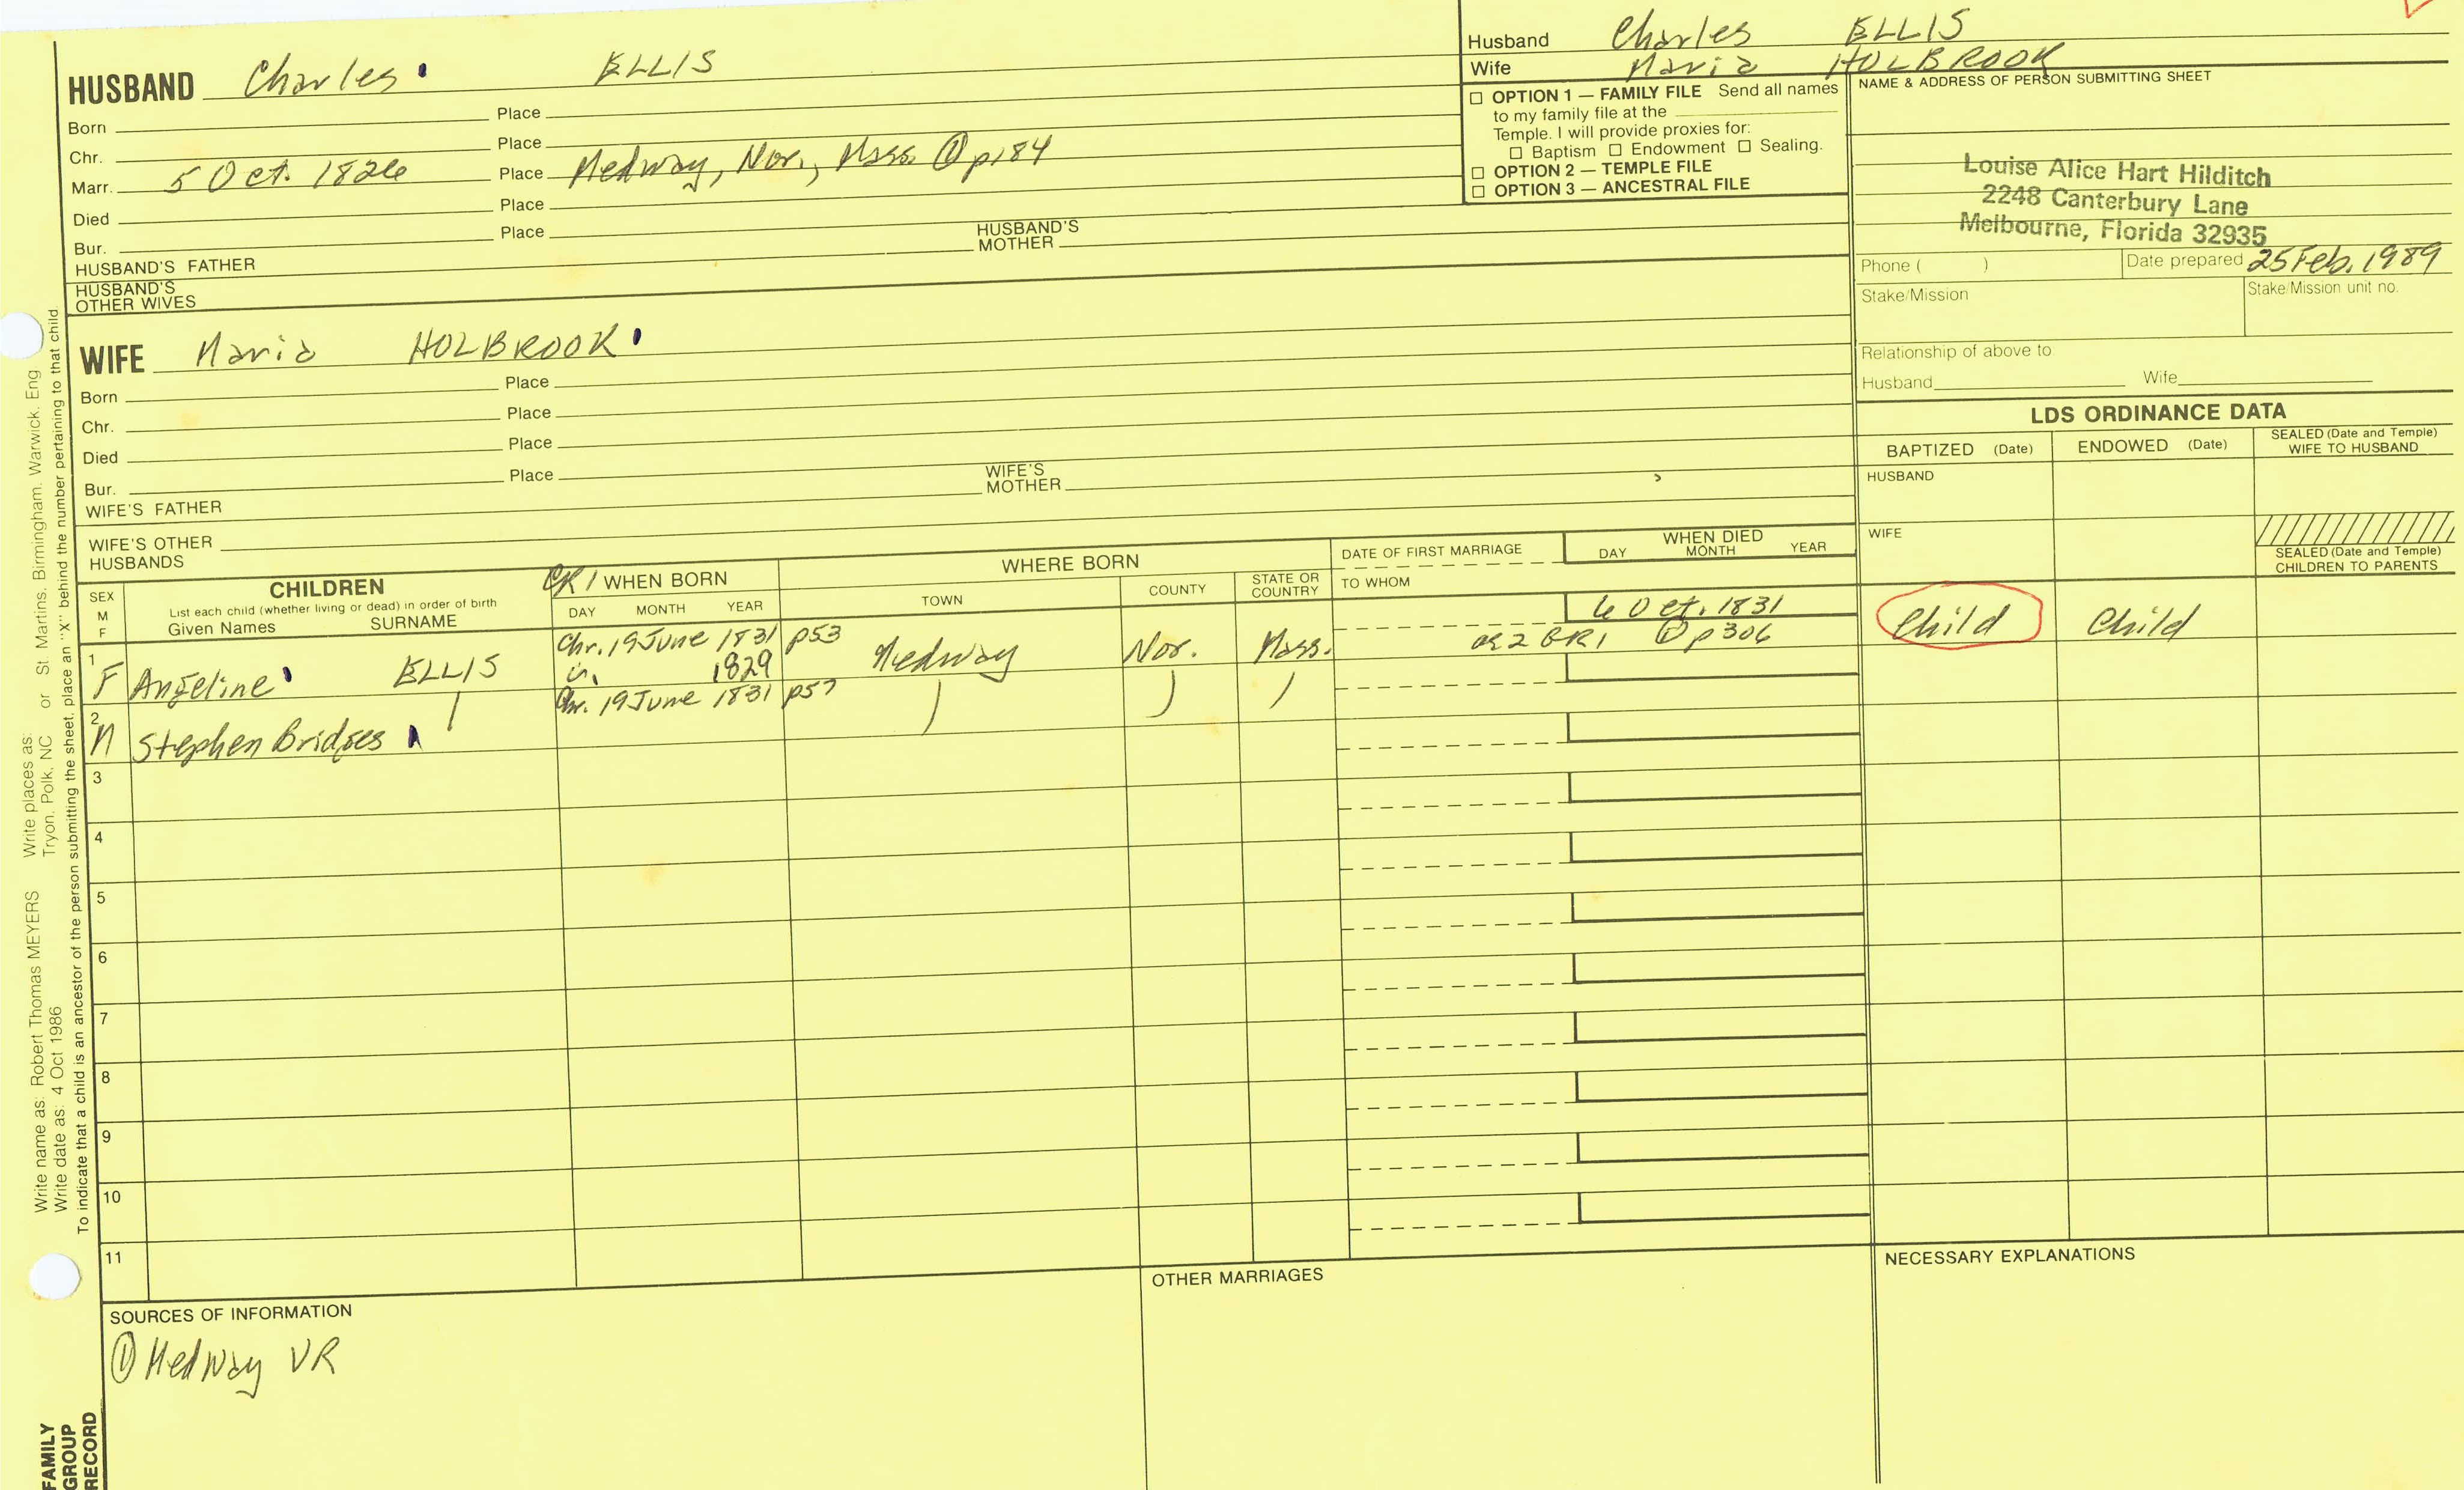 HUSBAND Charles ELLIS
Born Place
Chr. Place
Marr. 5 Oct. 1826 Place Medway, Nor., Mass. ① p184
Died Place
Bur. Place
HUSBAND'S FATHER HUSBAND'S MOTHER
HUSBAND'S OTHER WIVES
WIFE Maria HOLBROOK
Born Place
Chr. Place
Died Place
Bur. Place
WIFE'S FATHER WIFE'S MOTHER
WIFE'S OTHER HUSBANDS
Husband Charles ELLIS
Wife Maria HOLBROOK
☐ OPTION 1 — FAMILY FILE Send all names
to my family file at the
Temple. I will provide proxies for:
☐ Baptism ☐ Endowment ☐ Sealing.
☐ OPTION 2 — TEMPLE FILE
☐ OPTION 3 — ANCESTRAL FILE
NAME & ADDRESS OF PERSON SUBMITTING SHEET
Louise Alice Hart Hilditch
2248 Canterbury Lane
Melbourne, Florida 32935
Phone ( ) Date prepared 25 Feb. 1989
Stake/Mission Stake/Mission unit no.
Relationship of above to
Husband Wife
LDS ORDINANCE DATA
BAPTIZED (Date) ENDOWED (Date) SEALED (Date and Temple) WIFE TO HUSBAND
HUSBAND
WIFE
SEALED (Date and Temple) CHILDREN TO PARENTS
SEX M F
CHILDREN
List each child (whether living or dead) in order of birth
Given Names SURNAME
CR1 WHEN BORN
DAY MONTH YEAR
WHERE BORN
TOWN COUNTY STATE OR COUNTRY
DATE OF FIRST MARRIAGE
TO WHOM
WHEN DIED
DAY MONTH YEAR
1 F Angeline ELLIS Chr. 19 June 1831 p53 1829 Medway Nor. Mass. 6 Oct. 1831 ae 2 GR1 ① p306 Child Child
2 M Stephen Bridges Chr. 19 June 1831
3
4
5
6
7
8
9
10
11
SOURCES OF INFORMATION
① Medway VR
OTHER MARRIAGES
NECESSARY EXPLANATIONS
Write name as: Robert Thomas MEYERS Write places as: St. Martins, Birmingham, Warwick, Eng
Write date as: 4 Oct 1986 or Tryon, Polk, NC
To indicate that a child is an ancestor of the person submitting the sheet, place an "X" behind the number pertaining to that child
FAMILY
GROUP
RECORD